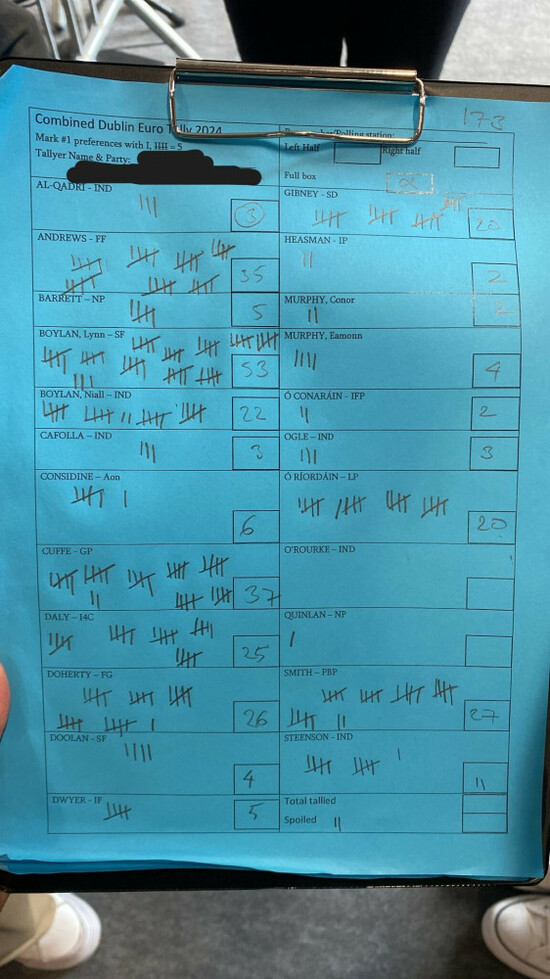 173
Combined Dublin Euro Tally 2024
Mark #1 preferences with I, IIII = 5
Tallyer Name & Party:
Polling station:
Left Half
Right half
Full box
AL-QADRI - IND
3
ANDREWS - FF
35
BARRETT - NP
5
BOYLAN, Lynn - SF
53
BOYLAN, Niall - IND
22
CAFOLLA - IND
3
CONSIDINE - Aon
6
CUFFE - GP
37
DALY - I4C
25
DOHERTY - FG
26
DOOLAN - SF
4
DWYER - IF
5
GIBNEY - SD
20
HEASMAN - IP
2
MURPHY, Conor
2
MURPHY, Eamonn
4
Ó CONARÁIN - IFP
2
OGLE - IND
3
Ó RÍORDÁIN - LP
20
O'ROURKE - IND
QUINLAN - NP
SMITH - PBP
27
STEENSON - IND
11
Total tallied
Spoiled